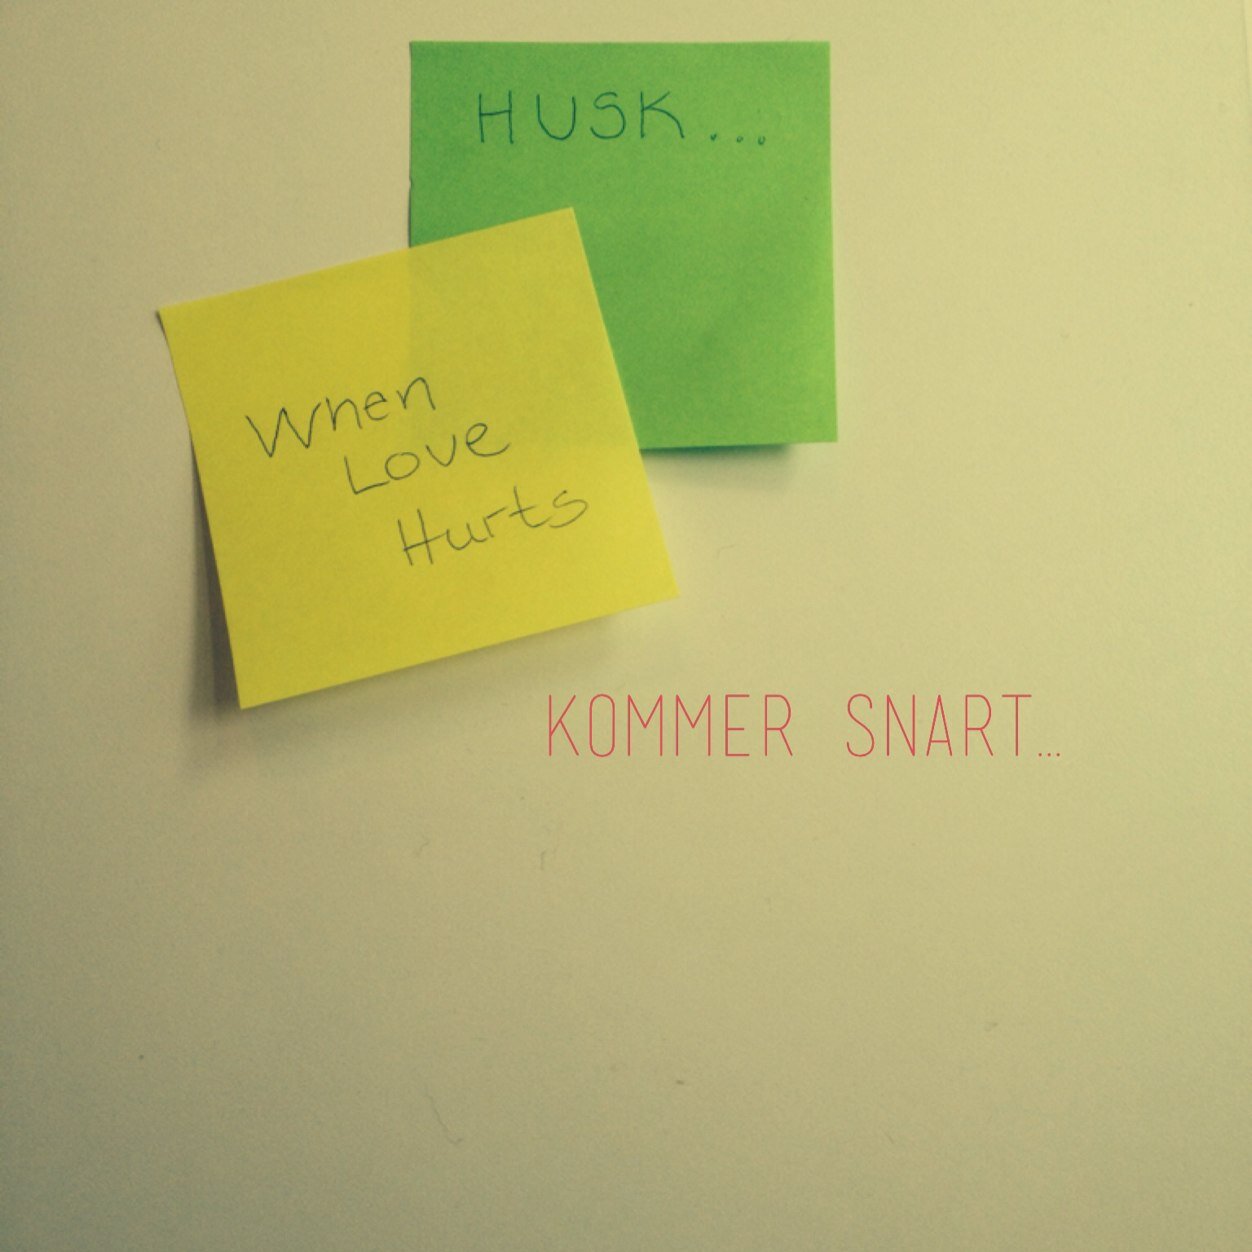 HUSK...
When
Love
Hurts
KOMMER SNART...